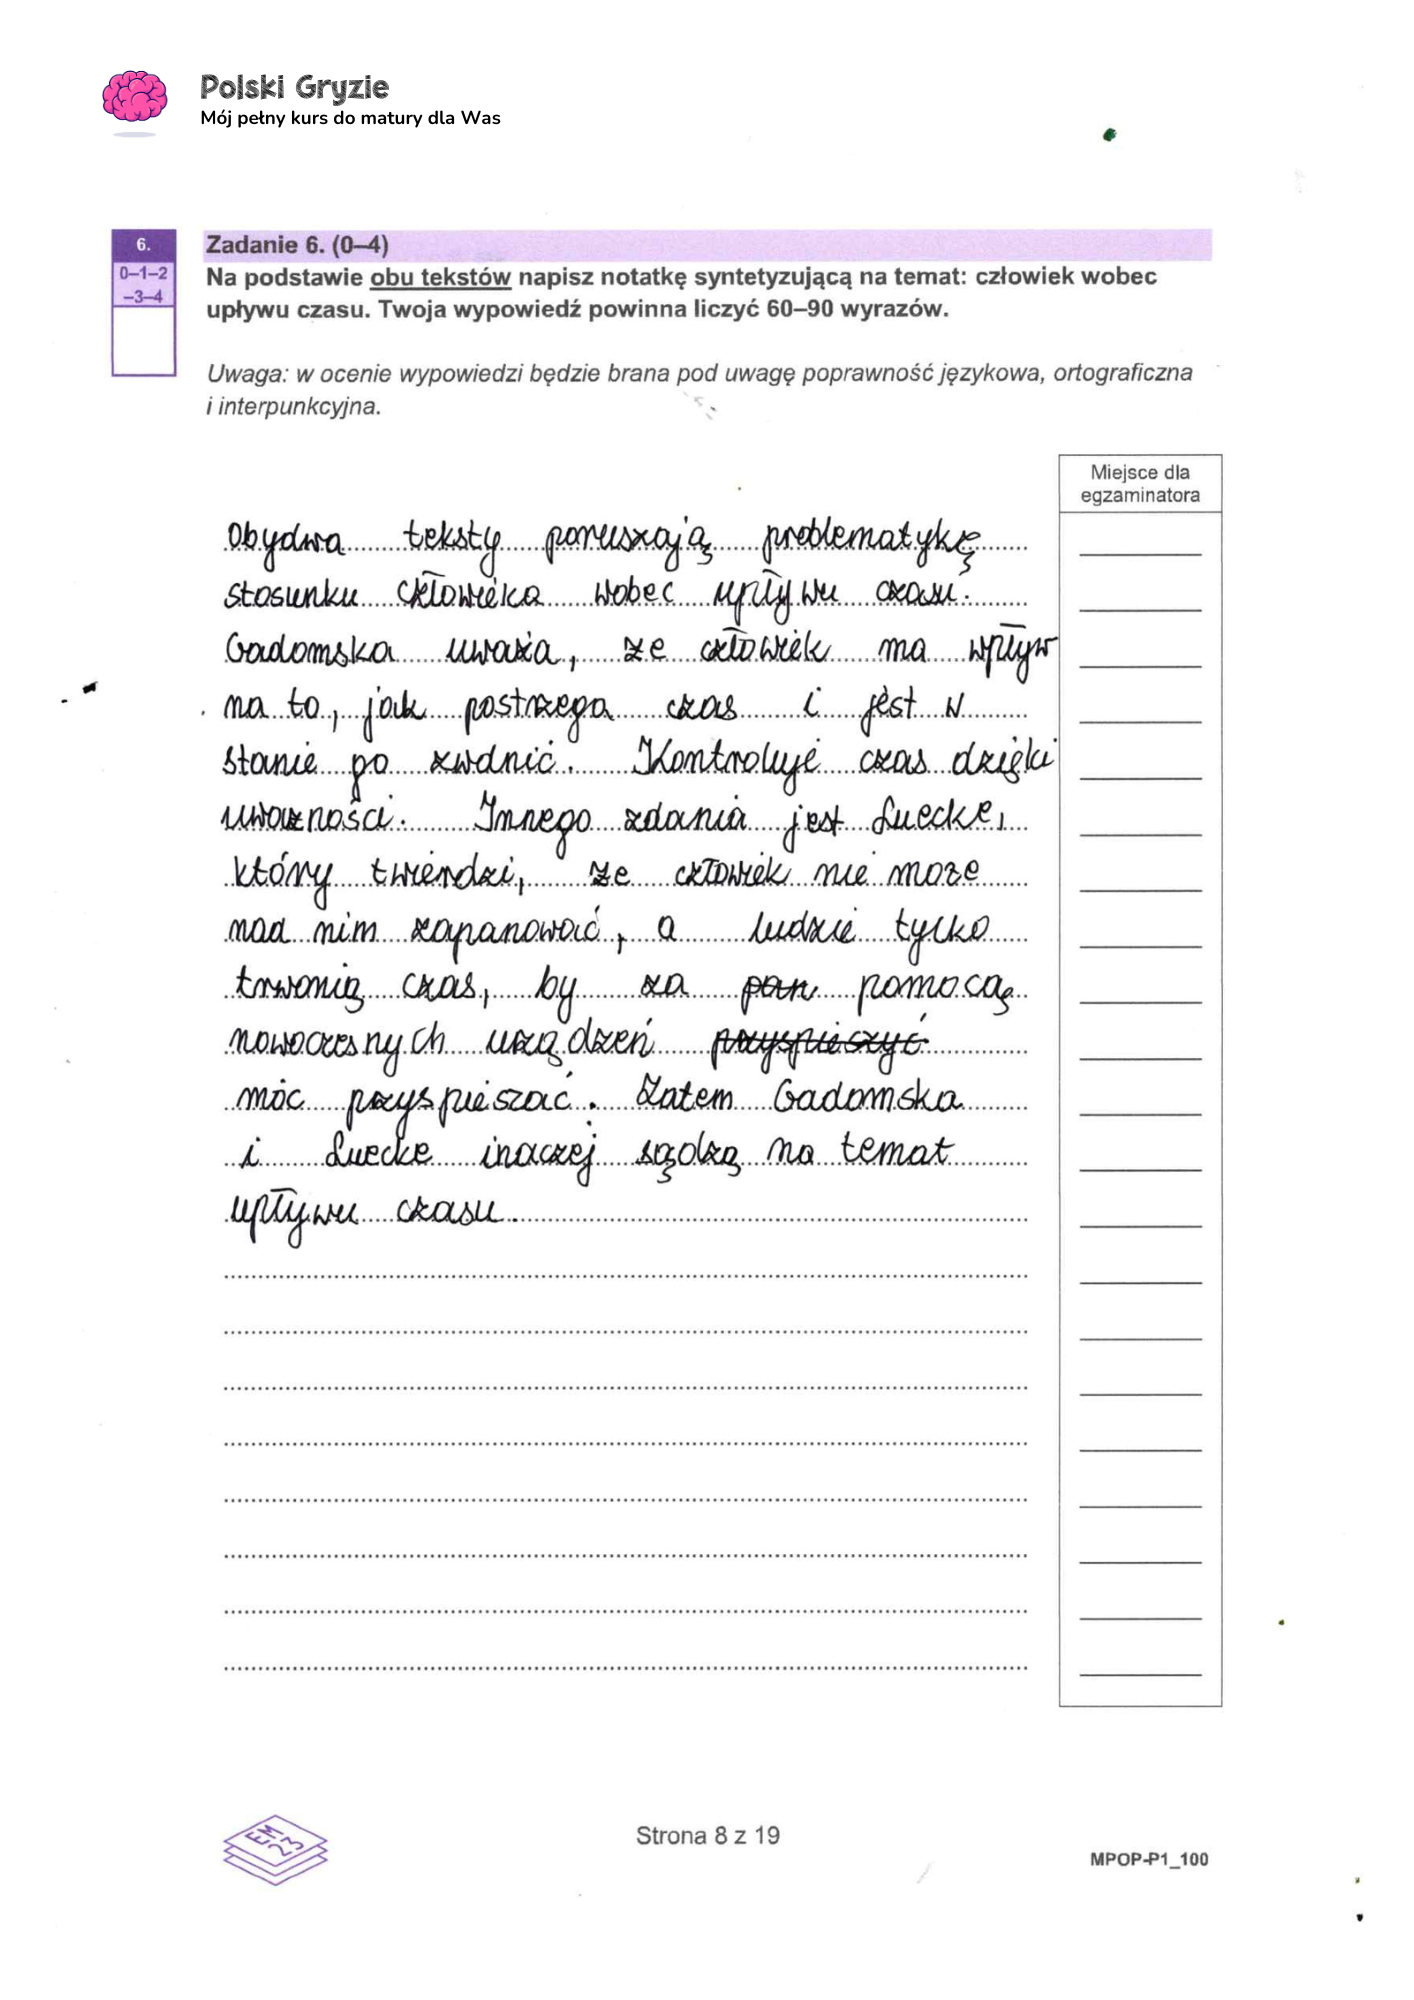 Polski Gryzie
Mój pełny kurs do matury dla Was
6.
0–1–2
–3–4
Zadanie 6. (0–4)
Na podstawie obu tekstów napisz notatkę syntetyzującą na temat: człowiek wobec
upływu czasu. Twoja wypowiedź powinna liczyć 60–90 wyrazów.
Uwaga: w ocenie wypowiedzi będzie brana pod uwagę poprawność językowa, ortograficzna
i interpunkcyjna.
Miejsce dla
egzaminatora
Obydwa teksty poruszają problematykę
stosunku człowieka wobec upływu czasu.
Gadomska uważa, że człowiek ma wpływ
na to, jak postrzega czas i jest w
stanie go zwolnić. Kontroluje czas dzięki
uważności. Innego zdania jest Luecke,
który twierdzi, że człowiek nie może
nad nim zapanować, a ludzie tylko
trwonią czas, by za pom pomocą
nowoczesnych urządzeń przyspieszyć
móc przyspieszać. Zatem Gadomska
i Luecke inaczej sądzą na temat
upływu czasu.
EM
23
Strona 8 z 19
MPOP-P1_100